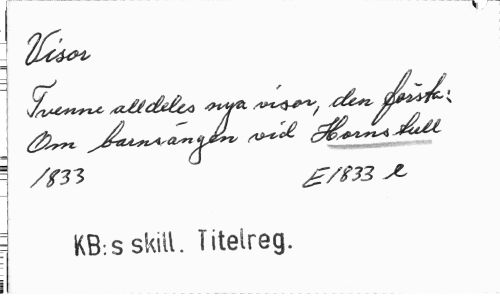 Visor
Tvenne alldeles nya visor, den första:
Om barnsängen vid Hornstull
1833 E1833 e
KB:s skill. Titelreg.